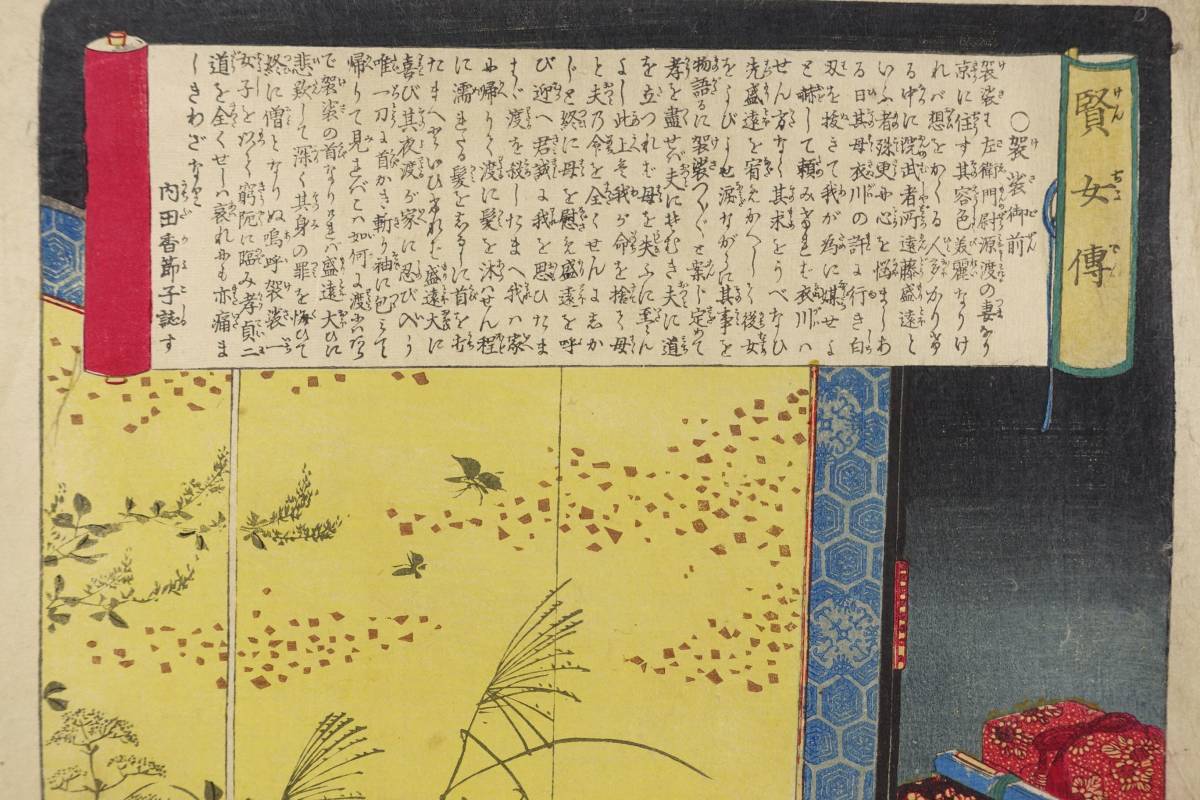 賢女傳
○袈裟御前
袈裟は左衛門尉源渡の妻なり
京に住す其容色美麗なりけ
れバ想をかくる人多かりける
る中に武者所遠藤盛遠と
いふ者殊更に心を悩ましあ
る日其母衣川の許に行き白
刃を抜きて我が為に媒せよ
と赫して頼みけるにぞ衣川ハ
せん方なく其求をうべなひ
先盛遠を宥めかへして後女
をよびよせ涙ながらに其事を
物語るに袈裟つくづくと案じ定めて
孝を盡せバ夫にそむき夫に道
を立つれば母を失ふに至らん
よし此上は我が命を捨てゝ母
と夫の命を全くせんにしか
じと終に母を慰め盛遠を呼
び迎へ君誠に我を思ひたま
はゞ渡を殺したまへ我ハ家
に帰りて渡に髪を沐はせん程
に濡れたる髪をしるしに首を
たまへといひければ盛遠大に
喜び其夜渡が家に忍び入り
唯一刀に首かき斬り袖に包みて
帰りて見れバこハ如何に渡にハ
で袈裟の首なりければ盛遠大ひに
悲歎して深く其身の罪を悔ひて
終に僧となりぬ嗚呼袈裟一
女子を以て窮阨に臨み孝貞二
道を全くせしハ哀れにも亦痛ま
しきわざなれ
内田香節子誌す